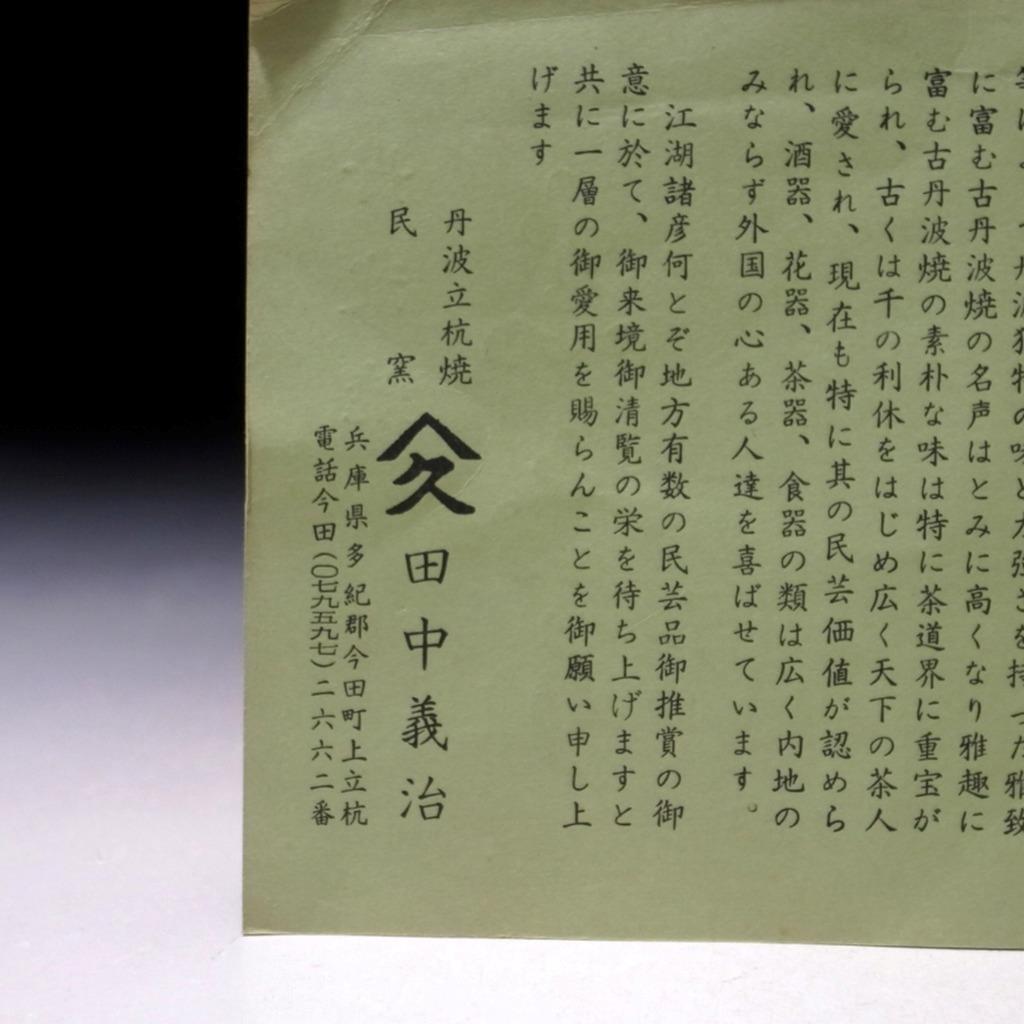 丹波独特の味と力強さを持った雅致
に富む古丹波焼の名声はとみに高くなり雅趣に
富む古丹波焼の素朴な味は特に茶道界に重宝が
られ、古くは千の利休をはじめ広く天下の茶人
に愛され、現在も特に其の民芸価値が認めら
れ、酒器、花器、茶器、食器の類は広く内地の
みならず外国の心ある人達を喜ばせています。
江湖諸彦何とぞ地方有数の民芸品御推賞の御
意に於て、御来境御清覧の栄を待ち上げますと
共に一層の御愛用を賜らんことを御願い申し上
げます
丹波立杭焼
民窯
久
田中義治
兵庫県多紀郡今田町上立杭
電話今田(〇七九五九七)二六六二番